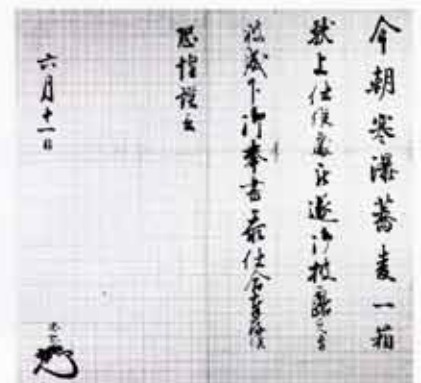 今朝寒瀑蕎麦一箱
献上仕候處被遂御披露之旨
被成下御奉書忝仕合奉存候
恐惶謹言
六月十一日